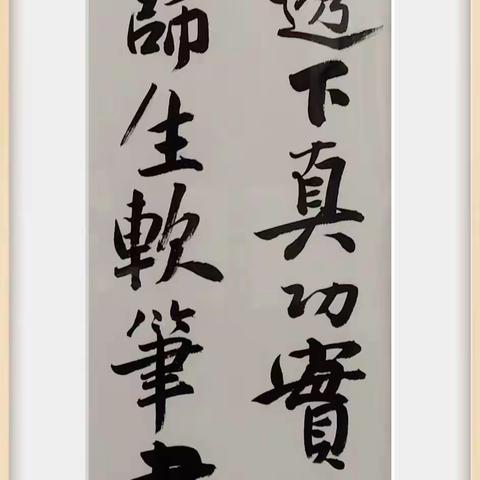 透下真功實
師生軟筆